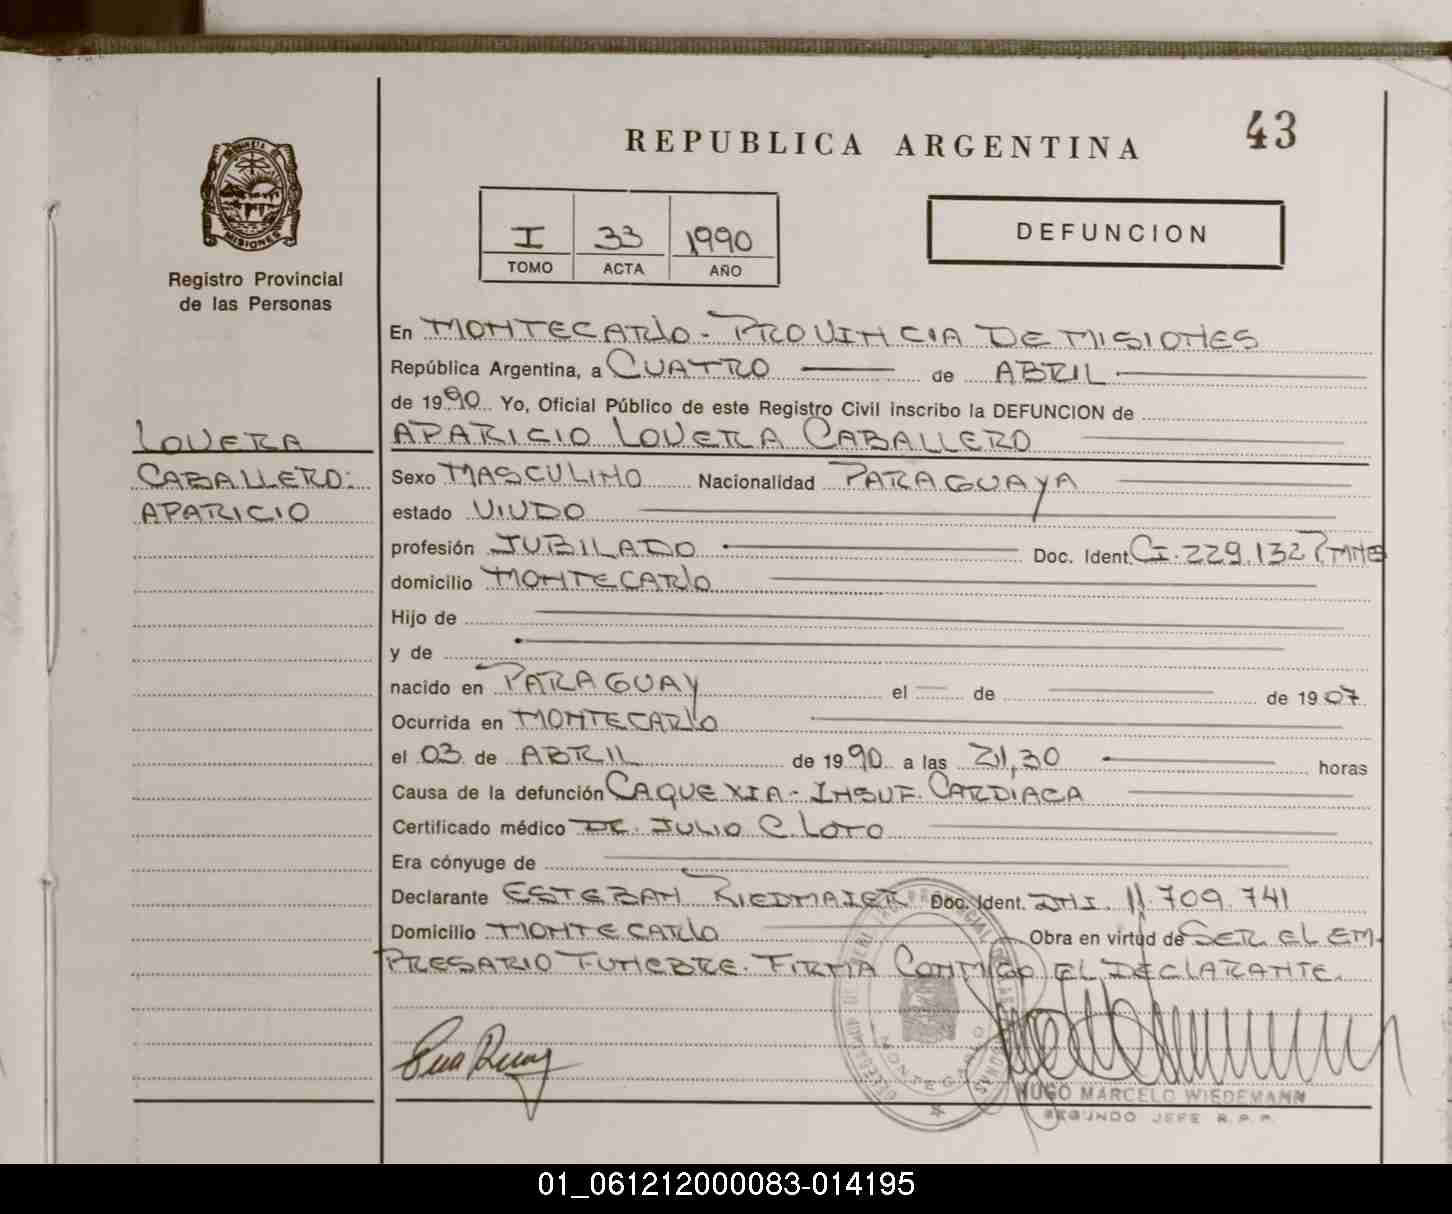 43
REPUBLICA ARGENTINA
MISIONES
Registro Provincial
de las Personas
I 33 1990
TOMO ACTA AÑO
DEFUNCION
En MONTECARLO - PROVINCIA DE MISIONES
República Argentina, a CUATRO de ABRIL
de 1990 Yo, Oficial Público de este Registro Civil inscribo la DEFUNCION de
APARICIO LOVERA CABALLERO
LOVERA
CABALLERO:
APARICIO
Sexo MASCULINO Nacionalidad PARAGUAYA
estado VIUDO
profesión JUBILADO Doc. Ident. CI. 229.132 MNES
domicilio MONTECARLO
Hijo de
y de
nacido en PARAGUAY el de de 1907
Ocurrida en MONTECARLO
el 03 de ABRIL de 1990 a las 21,30 horas
Causa de la defunción CAQUEXIA - INSUF. CARDIACA
Certificado médico DR. JULIO C. LOTO
Era cónyuge de
Declarante ESTEBAN RIEDMAIER Doc. Ident. DNI. 11.709.741
Domicilio MONTECARLO Obra en virtud de SER EL EM-
PRESARIO FUNEBRE. FIRMA CONMIGO EL DECLARANTE.
MONTECARLO
HUGO MARCELO WIEDEMANN
SEGUNDO JEFE R.P.P.
01_061212000083-014195